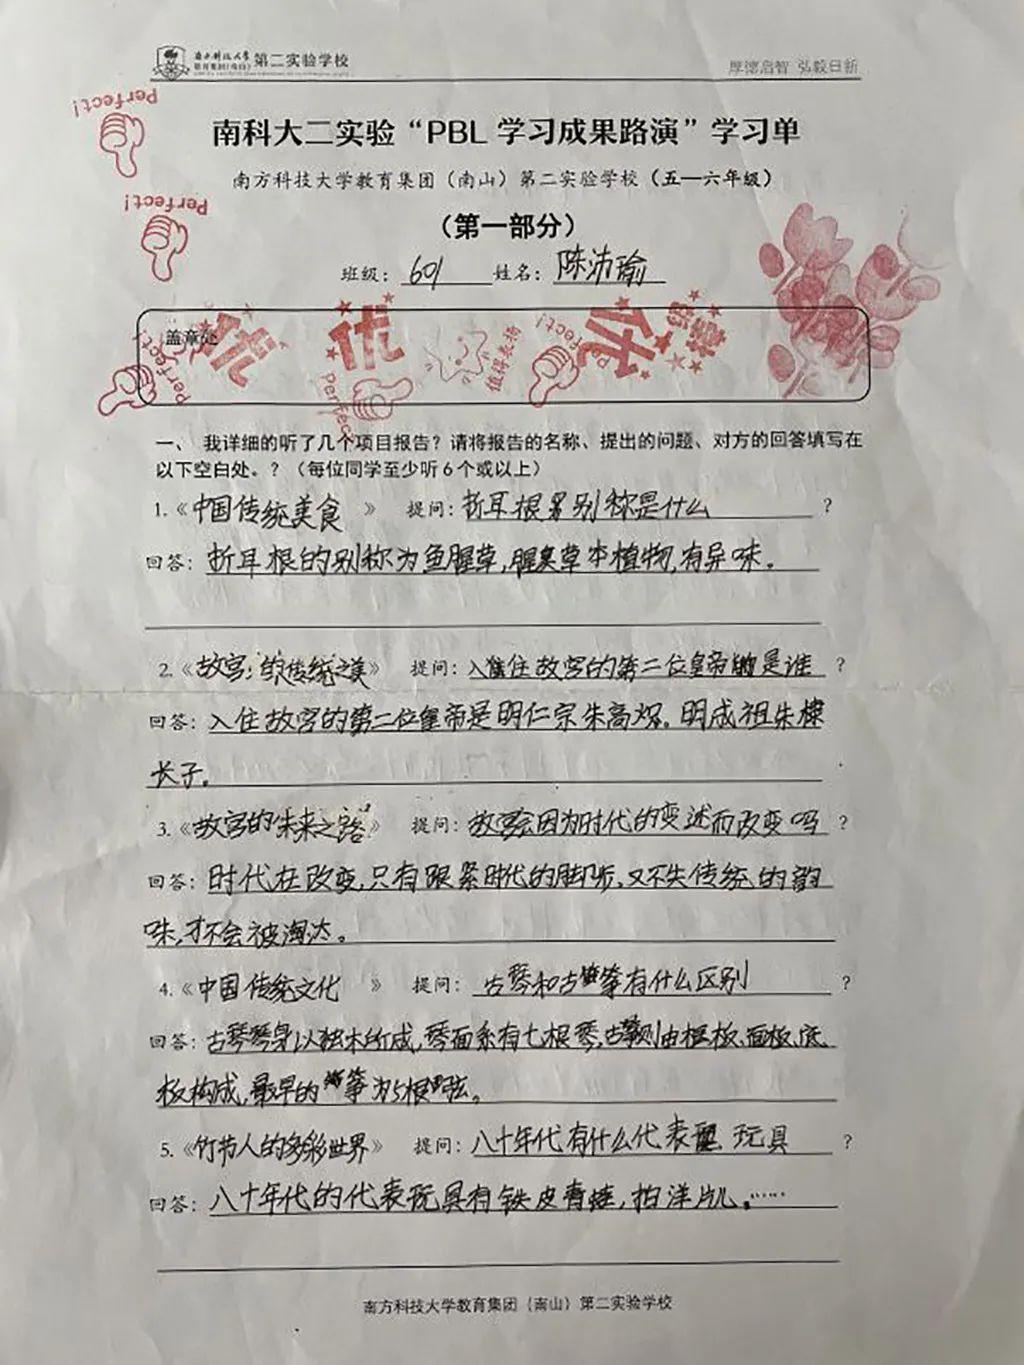 南方科技大学
教育集团(南山) 第二实验学校
厚德启智 弘毅日新
Perfect!
南科大二实验“PBL 学习成果路演”学习单
南方科技大学教育集团（南山）第二实验学校（五—六年级）
Perfect!
（第一部分）
班级：601 姓名：陈沛瑜
盖章处
优 优 值得表扬 Perfect! 优
Perfect! Perfect!
一、 我详细的听了几个项目报告？请将报告的名称、提出的问题、对方的回答填写在
以下空白处。？（每位同学至少听 6 个或以上）
1.《中国传统美食》 提问：折耳根 别称是什么？
回答：折耳根的别称为鱼腥草，腥臭草本植物，有异味。
2.《故宫：的传统之美》 提问：入住故宫的第二位皇帝是谁？
回答：入住故宫的第二位皇帝是明仁宗朱高炽。明成祖朱棣
长子。
3.《故宫的未来之路》 提问：故宫会因为时代的变述而改变吗？
回答：时代在改变，只有跟紧时代的脚步，又不失传统的韵
味，才不会被淘汰。
4.《中国传统文化》 提问：古琴和古筝有什么区别？
回答：古琴琴身以独木所成，琴面系有七根琴，古筝则由框板、面板、底
板构成，最早的筝为5根弦。
5.《竹节人的多彩世界》 提问：八十年代有什么代表玩具？
回答：八十年代的代表玩具有铁皮青蛙，拍洋片儿。……
南方科技大学教育集团（南山）第二实验学校